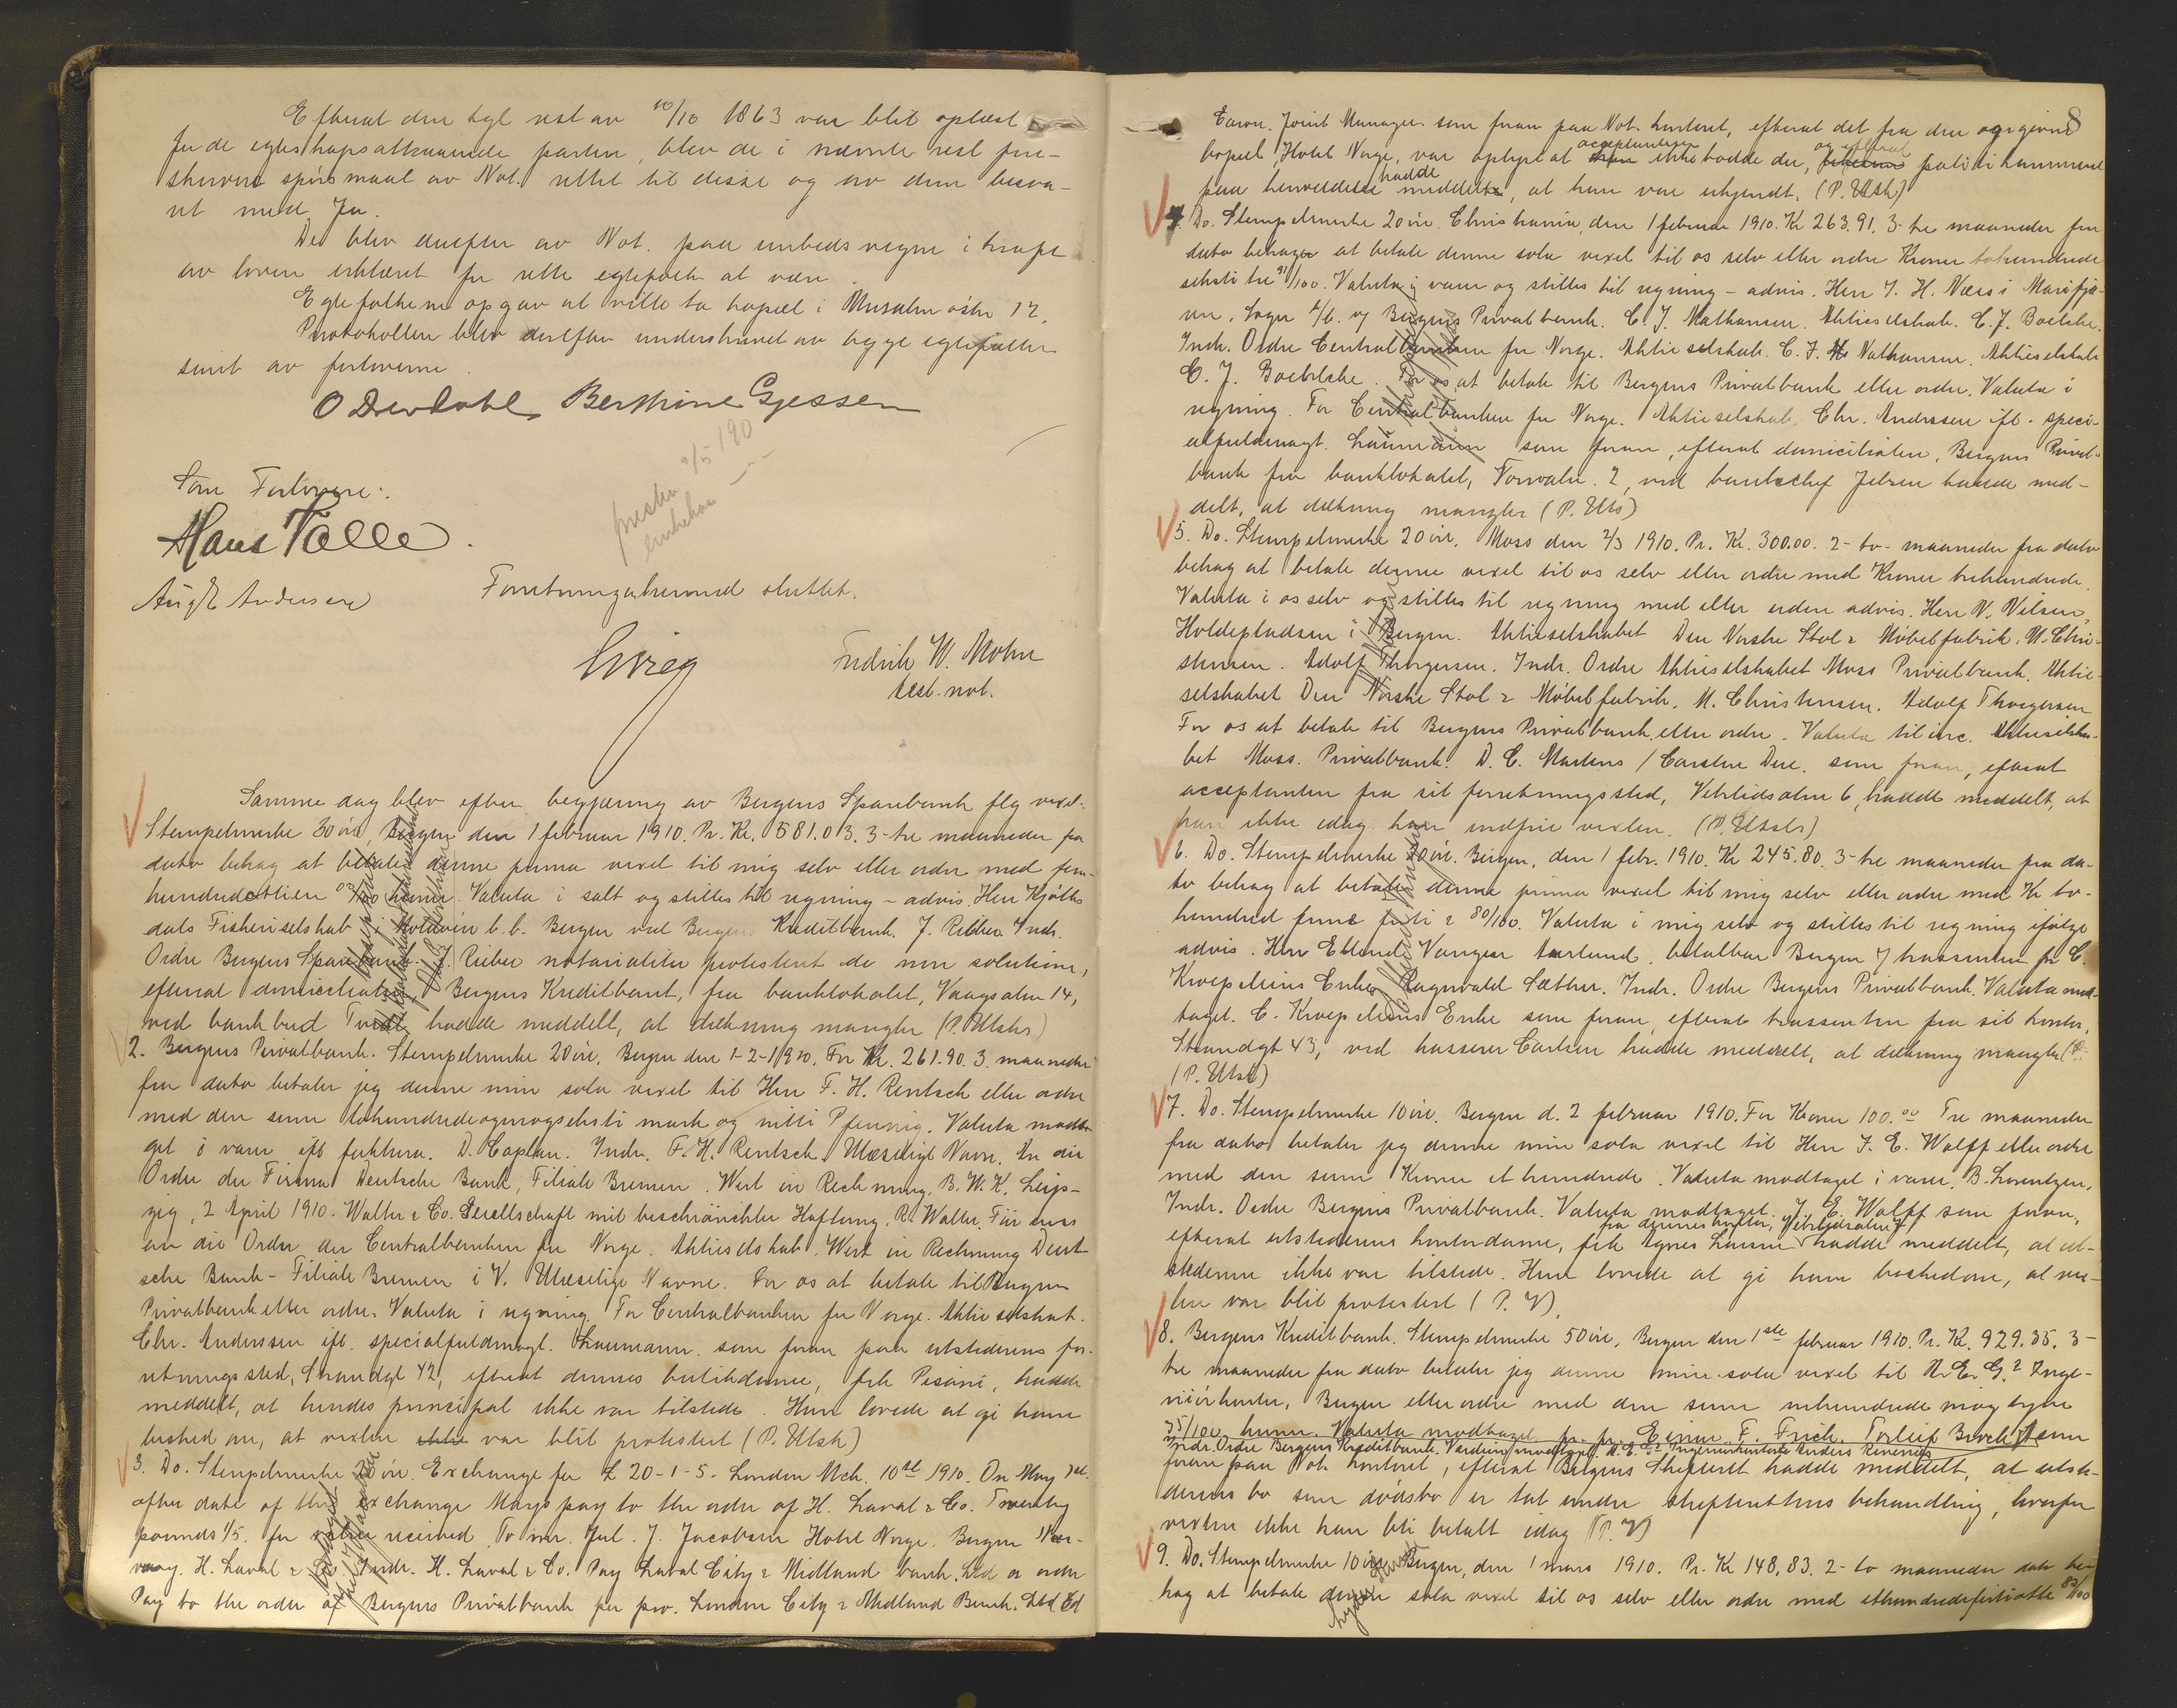 Efterat den kgl rest av 10/10 1863 var blit oplæst
for de egteskapsattraaende parter, blev de i nævnte rest fore-
skrevne spørsmaal av Not. rettet til disse og av dem besva-
ret med Ja.
Det blev derefter av Not. paa embeds vegne i kraft
av loven erklæret for rette egtefolk at være.
Egtefolkene opgav at ville ta bopæl i Musealm. østre 12.
Protokollen blev derefter underskrevet av begge egtefæller
samt av forloverne.
O Drevdahl Berthine Gjessen
Som Forlovere:
Hans Tolle
Aug E Andersen
Forretningen hermed sluttet.
Fredrik W. Mohn
const. not.
Samme dag blev efter begjæring av Bergens Sparebank flg vexel:
Stempelmerke 30 øre, Bergen den 1 februar 1910. Pr. Kr. 581.03. 3-tre maaneder fra
dato behag at betale denne prima vexel til mig selv eller ordre med fem-
hundredeottien 03/100 kroner. Valuta i salt og stilles til regning - advis. Herr Kjøtte-
dals Fiskeriselskab i b.b. Bergen ved Bergens Kreditbank. J. Rieber. Indr.
Ordre Bergens Sparebank. J. Rieber notarialiter protesteret de non solutione,
efterat domiciliaten, Bergens Kreditbank, fra banklokalet, Vaagsalm 14,
ved bankbud Tvedt hadde meddelt, at dækning mangler (P. Utsts)
2. Bergens Privatbank. Stempelmerke 20 øre. Bergen den 1-2-1910. For M. 261.90. 3 maaneder
fra dato betaler jeg denne min sola vexel til Herr F. H. Rentsch eller ordre
med den sum tohundredeogenogseksti mark og nitti Pfennig. Valuta modta-
get i varer ift faktura. D. Caplan. Indr. F. H. Rentsch. Ulæseligt Navn. An die
Ordre der Firma Deutsche Bank, Filiale Bremen. Wert in Rechnung. B. W. K. Leip-
zig, 2 April 1910. Walter & Co. Gesellschaft mit beschränkter Haftung. R. Walter. Für uns
an die Ordre der Centralbanken for Norge. Aktieselskab. Wert in Rechnung Deut-
sche Bank - Filiale Bremen i V. Ulæselige Navne. For os at betale til Bergens
Privatbank eller ordre. Valuta i regning. For Centralbanken for Norge. Aktieselskab.
Chr. Anderssen ift. specialfuldmagt. Laumann. som foran paa utstederens for-
retningssted, Strandgt 42, efterat dennes butikdame, frk Pisani, hadde
meddelt, at hendes principal ikke var tilstede. Hun lovede at gi ham
besked om, at vexlen ikke var blit protesteret (P. Utst)
3. Do. Stempelmerke 20 øre. Exchange for £ 20-1-5. London Mch. 10th 1910. On May 1st
after date of this exchange Mays pay to the order of H. Laval & Co. Twenty
pounds 1/5. for value received. To mr. Jul. J. Jacobsen Hotel Norge. Bergen Nor-
way. H. Laval & Co. Indr. H. Laval & Co. Pay Laval City & Midland bank. Ltd or order
Pay to the order of Bergens Privatbank per pro. London City & Midland Bank. Ltd. Ed
8
Joint Manager som foran paa Not. kontoret, efterat det fra den opgivne
bopæl, Hotel Norge, var oplyst at acceptanten ikke bodde der, og efterat politikammeret
paa henvendelse hadde meddelt, at han var ukjendt. (P. Utst)
4. Do. Stempelmerke 20 øre. Christiania, den 1 februar 1910. Kr 263.91. 3-tre maaneder fra
dato behager at betale denne sola vexel til os selv eller ordre Kroner tohundrede
seksti tre 91/100. Valuta i varer og stilles til regning - advis. Herr J. H. Næss i Marifjæ-
ren, Sogn Bergens Privatbank. C. J. Nathansen. Aktieselskab. C. J. Boetzke.
Indr. Ordre Centralbanken for Norge. Aktieselskab. C. J. Nathansen. Aktieselskab
C. J. Boetzke. For os at betale til Bergens Privatbank eller ordre. Valuta i
regning. For Centralbanken for Norge. Aktieselskab. Chr. Anderssen ift. speci-
alfuldmagt. Laumann som foran, efterat domiciliaten, Bergens Privat-
bank fra banklokalet, Torvalm. 2, ved bankchef Jebsen hadde med-
delt, at dækning mangler (P. Uts)
5. Do. Stempelmerke 20 øre. Moss den 2/3 1910. Pr. Kr. 300.00. 2-to- maaneder fra dato
behag at betale denne vexel til os selv eller ordre med Kroner trehundrede.
Valuta i os selv og stilles til regning med eller uden advis. Herr N. Nilsen,
Holdepladsen i Bergen. Aktieselskabet Den Norske Stol & Møbelfabrik. M. Chri-
stensen. Adolf Thorgersen. Indr. Ordre Aktieselskabet Moss Privatbank. Aktie-
selskabet Den Norske Stol & Møbelfabrik. M. Christensen. Adolf Thorgersen
For os at betale til Bergens Privatbank eller ordre. Valuta til inc. Aktieselska-
bet Moss. Privatbank. D. C. Martens / Carsten Dere. som foran, efterat
acceptanten fra sit forretningssted, Vetrlidsalm 6, hadde meddelt, at
han ikke idag kan indfrie vexlen. (P. Utsts)
6. Do. Stempelmerke 20 øre. Bergen, den 1 febr. 1910. Kr 245.80. 3-tre maaneder fra da-
to behag at betale denne prima vexel til mig selv eller ordre med Kr to-
hundred femt firti & 80/100. Valuta i mig selv og stilles til regning ifølge
advis. Herr Erland Vangen Aurland, betalbar Bergen / trassenten for C.
Kroepeliens Enke Ragnvald Sæther. Indr. Ordre Bergens Privatbank. Valuta mod-
taget. C. Kroepeliens Enke som foran, efterat trassenten fra sit kontor,
Strandgt 43, ved kasserer Carlsen hadde meddelt, at dækning mangler
(P. Utst)
7. Do. Stempelmerke 10 øre. Bergen d. 2 februar 1910. For Kroner 100.00 Tre maaneder
fra dato betaler jeg denne min sola vexel til Herr J. E. Wolff eller ordre
med den sum Kroner et hundrede. Valuta modtaget i varer. B. Lorentzen.
Indr. Ordre Bergens Privatbank. Valuta modtaget. J. E. Wolff som foran,
efterat utstederens kontordame, frk Agnes Larsen fra dennes kontor, Vetrlidsalm 7 hadde meddelt, at ut-
stederen ikke var tilstede. Hun lovede at gi ham besked om, at vex-
len var blit protestert (P. V)
8. Bergens Kreditbank. Stempelmerke 50 øre. Bergen den 1ste februar 1910. Pr. Kr. 929.35. 3-
tre maaneder fra dato betaler jeg denne min sola vexel til A. E. G.s Inge-
niørkontor, Bergen eller ordre med den sum nihundrede niogtyve
35/100 kroner. Valuta modtaget pr. pr. Einar F. Frich. Torleif Brochst som
Indr. Ordre Bergens Kreditbank. Værdien modtaget. A. E. G.s Ingeniørkontor Anders
foran paa Not. kontoret, efterat Bergens Skifteret hadde meddelt, at utste-
derens bo som dødsbo er tat under skifterettens behandling, hvorfor
vexlen ikke kan bli betalt idag (P. V)
9. Do. Stempelmerke 10 øre. Bergen, den 1 mars 1910. Pr. Kr 148,83. 2-to maaneder dato be-
hag at betale denne sola vexel til os selv eller ordre med ethundredefirtiotte 83/100